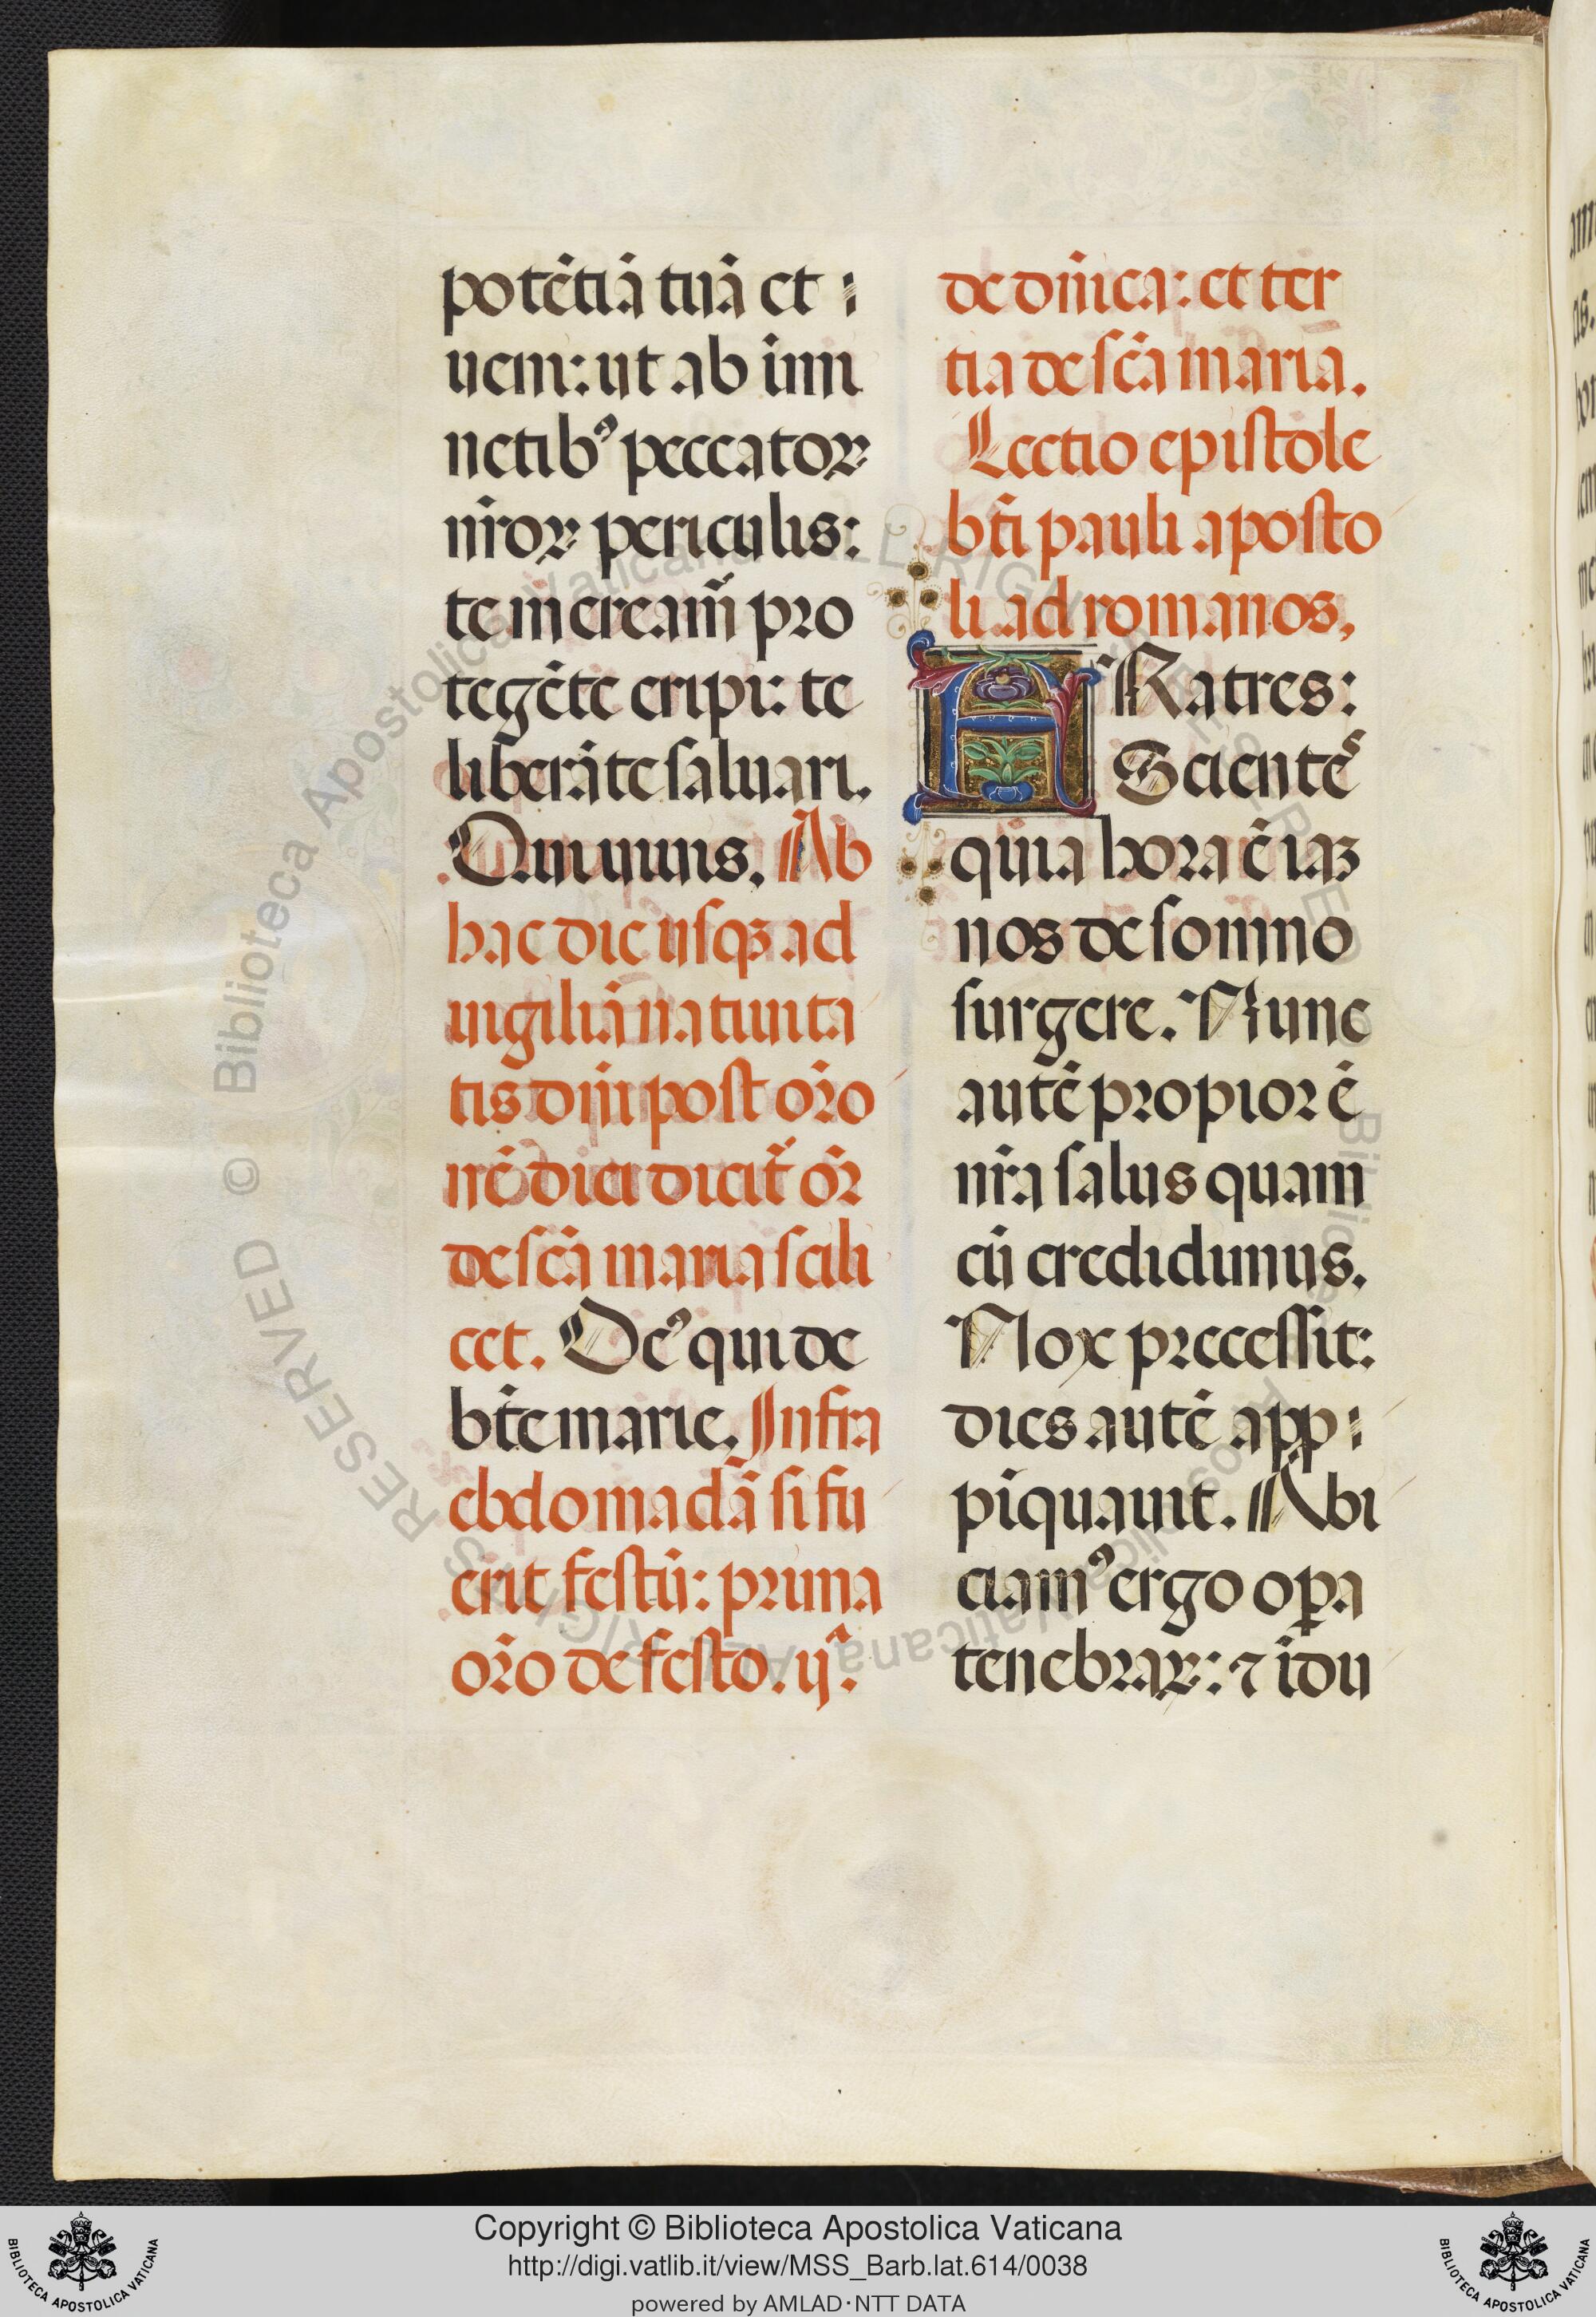 potētiā tuā et :
uem: ut ab imi
netib⁹ peccatoꝝ
nr̄oꝝ periculis:
te meream̃ pro
tegēte eripi: te
liberāte saluari.
Qui uiuis. Ab
hac die usqꝫ ad
uigiliā natiuita
tis dn̄i post or̄o
nē diei dicit̃ or̄
de sc̄a maria scili
cet. De⁹ qui de
bt̄e marie. Infra
ebdomadā si fu
erit festū: prima
or̄o de festo. ijᵃ.
de dn̄ica: et ter
tia de sc̄a maria.
Lectio epistole
bt̄i pauli aposto
li ad romanos.
FRatres:
Scientes
quia hora ē iaꝫ
nos de somno
surgere. Nunc
autē propior ē
nr̄a salus quam
cū credidimus.
Nox precessit:
dies autē app:
pīquauit. Abi
ciam⁹ ergo oꝑa
tenebraꝝ: ⁊ idu
Biblioteca Apostolica Vaticana ALL RIGHTS RESERVED ©
Copyright © Biblioteca Apostolica Vaticana
http://digi.vatlib.it/view/MSS_Barb.lat.614/0038
powered by AMLAD·NTT DATA
BIBLIOTECA APOSTOLICA VATICANA
BIBLIOTECA APOSTOLICA VATICANA